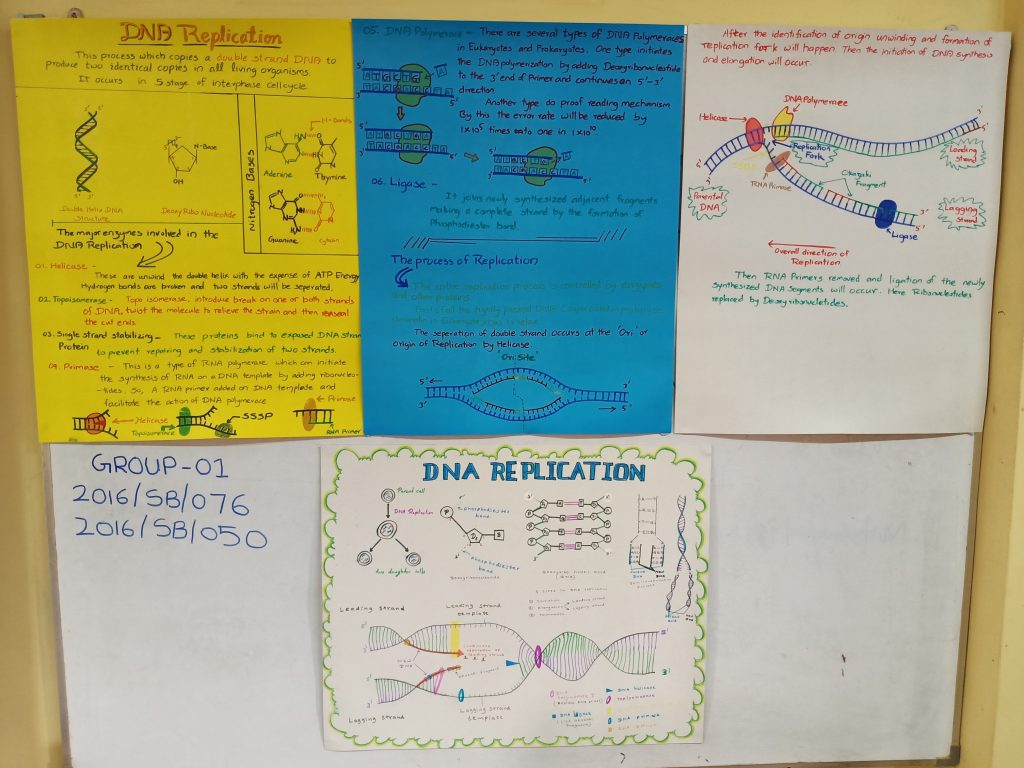 DNA Replication
This process which copies a double strand DNA to
produce two identical copies in all living organisms.
It occurs in S stage of interphase cell cycle.
Nitrogen Bases
H-Bonds
N-Base
OH
Adenine
Thymine
Guanine
Double Helix DNA
Structure
Deoxy Ribo Nucleotide
The major enzymes involved in the
DNA Replication
01. Helicase -
These are unwind the double helix with the expense of ATP Energy
Hydrogen bonds are broken and two strands will be seperated.
02. Topoisomerase - Topo isomerase, introduce break on one or both strands
of DNA, twist the molecule to relieve the strain and then reseal
the cut ends.
03. Single strand stabilizing - These proteins bind to exposed DNA stran
Protein to prevent repairing and stabilization of two strands.
04. Primase - This is a type of RNA polymerase which can initiate
the synthesis of RNA on a DNA template by adding ribonucleo-
-tides. So, A RNA primer added on DNA template and
facilitate the action of DNA polymerase
Helicase
Topoisomerase
SSSP
Primase
RNA Primer
05. DNA Polymerase - There are several types of DNA Polymerases
in Eukaryotes and Prokaryotes. One type initiates
the DNA polymerization by adding Deoxyribonucleotide
to the 3' end of Primer and continues on 5'-3'
direction
Another type do proof reading mechanism
By this the error rate will be reduced by
1×10⁵ times onto one in 1×10¹⁰.
06. Ligase -
It joins newly synthesized adjacent fragments
Making a complete strand by the formation of
Phosphodiester bond.
The process of Replication
The entire replication process is controlled by enzymes
and other proteins.
The seperation of double strand occurs at the 'Ori' or
origin of Replication by Helicase.
'Ori' Site
5'
3'
3'
5'
After the identification of origin unwinding and formation of
replication fork will happen. Then the initiation of DNA synthesis
and elongation will occur.
DNA Polymerase
Helicase
Replication
Fork
SSSP
RNA Primase
Okazaki
Fragment
Leading
Strand
Parental
DNA
Lagging
Strand
Ligase
Overall direction of
Replication
Then RNA Primers removed and ligation of the newly
synthesized DNA segments will occur. Here Ribonucleotides
replaced by Deoxyribonucleotides.
GROUP-01
2016/SB/076
2016/SB/050
DNA REPLICATION
Parent cell
DNA Replication
two daughter cells
phosphodiester
bond
Leading strand
Leading strand
template
New
DNA
Lagging strand
Lagging strand
template
DNA helicase
Topoisomerase
DNA primase
DNA ligase